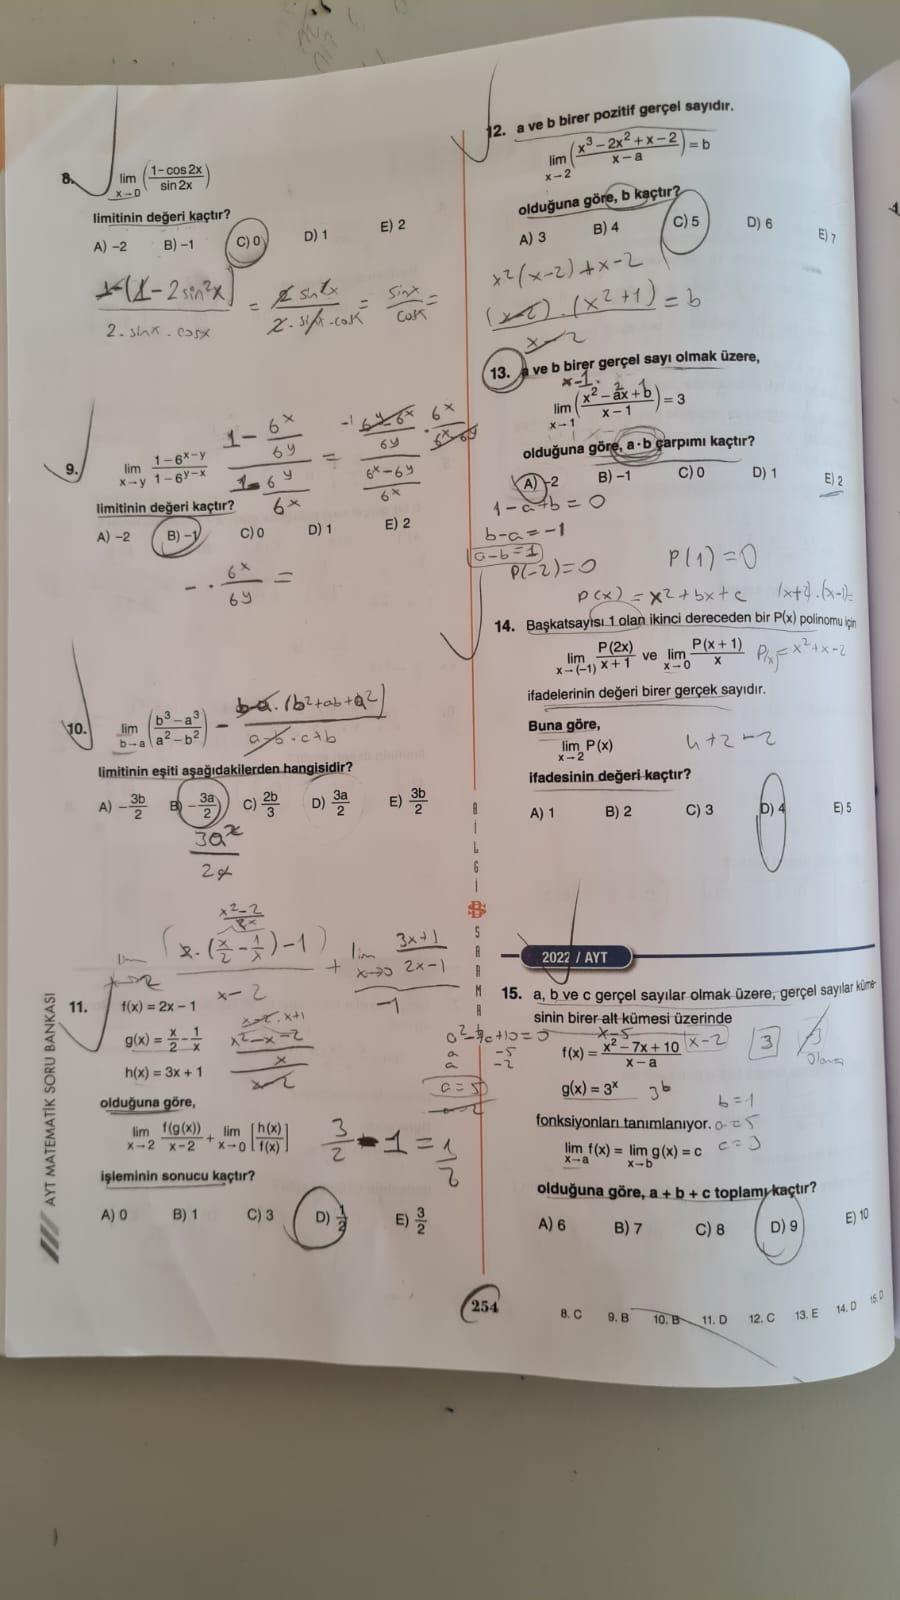 8. lim x→0 (1-cos2x / sin2x)
limitinin değeri kaçtır?
A) -2 B) -1 C) 0 D) 1 E) 2
1-(1-2sin²x) / 2.sinx.cosx = 2sin²x / 2.sinx.cosx = sinx / cosx =
9. lim x→y 1-6^(x-y) / 1-6^(y-x)
limitinin değeri kaçtır?
A) -2 B) -1 C) 0 D) 1 E) 2
- . 6^x / 6^y =
10. lim b→a (b³-a³ / a²-b²)
limitinin eşiti aşağıdakilerden hangisidir?
A) -3b/2 B) -3a/2 C) 2b/3 D) 3a/2 E) 3b/2
11. f(x) = 2x - 1
g(x) = x/2 - 1/x
h(x) = 3x + 1
olduğuna göre,
lim x→2 f(g(x)) / x-2 + lim x→0 [h(x) / f(x)]
3/2 - 1 = 1/2
işleminin sonucu kaçtır?
A) 0 B) 1 C) 3 D) 1/2 E) 3/2
AYT MATEMATİK SORU BANKASI
BİLGİ SARMA
12. a ve b birer pozitif gerçel sayıdır.
lim x→2 (x³-2x²+x-2 / x-a) = b
olduğuna göre, b kaçtır?
A) 3 B) 4 C) 5 D) 6 E) 7
x²(x-2)+x-2
(x-2).(x²+1) / x-2 = b
13. a ve b birer gerçel sayı olmak üzere,
lim x→1 (x²-ax+b / x-1) = 3
olduğuna göre, a·b çarpımı kaçtır?
A) -2 B) -1 C) 0 D) 1 E) 2
1-a+b=0
b-a=-1
a-b=1
P(-2)=0 P(1)=0
P(x) = x²+bx+c
14. Başkatsayısı 1 olan ikinci dereceden bir P(x) polinomu için
lim x→(-1) P(2x) / x+1 ve lim x→0 P(x+1) / x
P(x)=x²+x-2
ifadelerinin değeri birer gerçek sayıdır.
Buna göre,
lim x→2 P(x)
4+2-2
ifadesinin değeri kaçtır?
A) 1 B) 2 C) 3 D) 4 E) 5
2022 / AYT
15. a, b ve c gerçel sayılar olmak üzere, gerçel sayılar küme-
sinin birer alt kümesi üzerinde
f(x) = x²-7x+10 / x-a
g(x) = 3^x
b=1
fonksiyonları tanımlanıyor. a=5
lim x→a f(x) = lim x→b g(x) = c c=3
olduğuna göre, a + b + c toplamı kaçtır?
A) 6 B) 7 C) 8 D) 9 E) 10
254
8. C 9. B 10. B 11. D 12. C 13. E 14. D 15. D